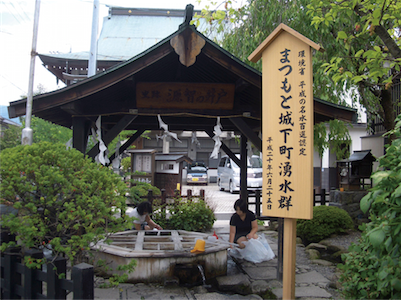 環境省
平成の名水百選認定
まつもと城下町湧水群
平成二十年六月二十五日
源智の井戸